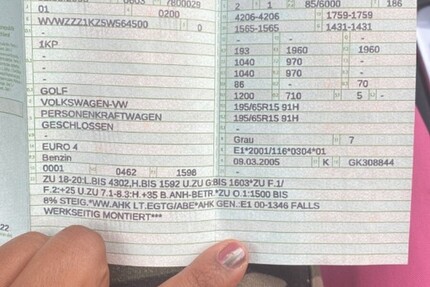 0603 7800029 2 1 85/6000 186
01 0200 4206-4206 1759-1759
WVWZZZ1KZ5W564500 0 1565-1565 1431-1431
- -
1KP 193 1960 1960
- 1040 970 -
- 1040 970 -
86 - 70
GOLF 1200 710 5 -
VOLKSWAGEN-VW 195/65R15 91H
PERSONENKRAFTWAGEN 195/65R15 91H
GESCHLOSSEN -
- Grau 7
EURO 4 E1*2001/116*0304*01
Benzin 09.03.2005 K GK308844
0001 0462 1598
ZU 18-20:L.BIS 4302,H.BIS 1592 U.ZU G:BIS 1603*ZU F.1/
F.2:+25 U.ZU 7.1-8.3:H.+35 B.ANH-BETR.*ZU O.1:1500 BIS
8% STEIG.*WW.AHK LT.EGTG/ABE*AHK GEN.:E1 00-1346 FALLS
WERKSEITIG MONTIERT***
22